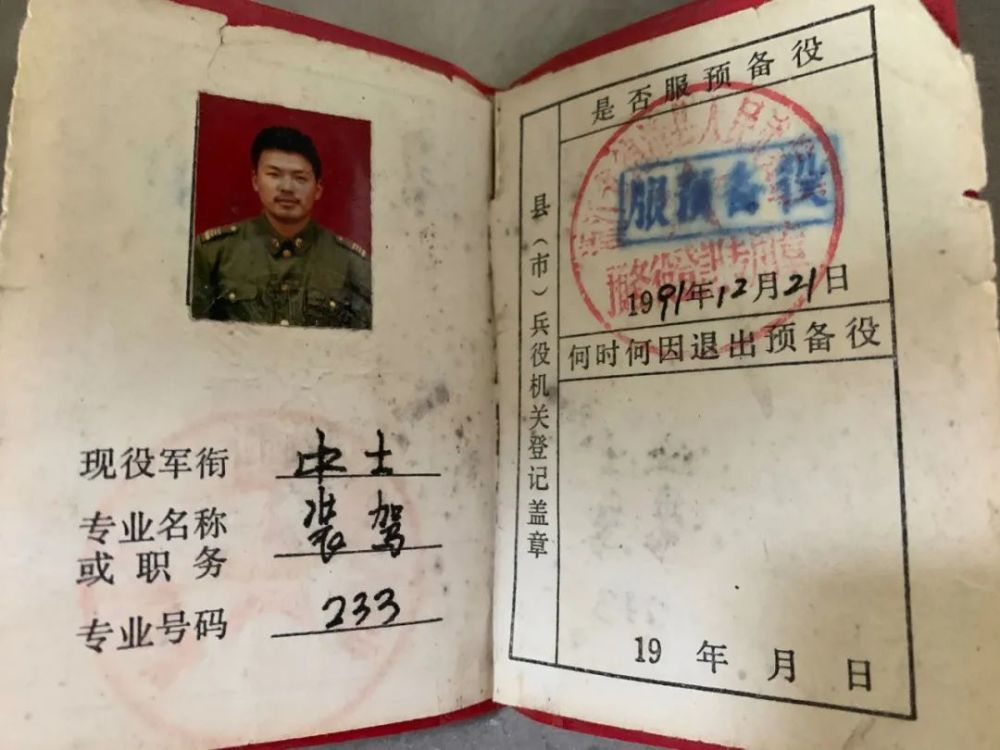 现役军衔 中士
专业名称
或职务 装驾
专业号码 233
县（市）兵役机关登记盖章
是否服预备役
县人民
服预备役
1991年12月21日
何时何因退出预备役
19 年 月 日